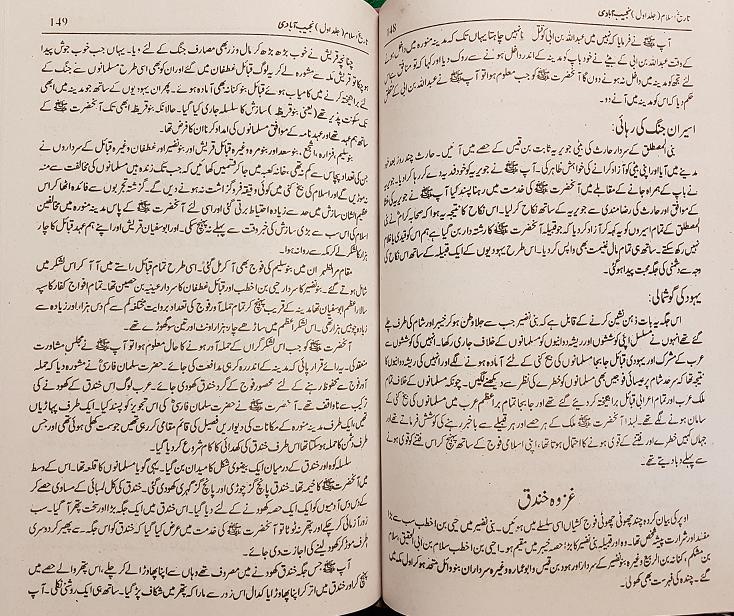 تاریخ اسلام (جلد اول) نجیب آبادی
148
آپ ﷺ نے فرمایا کہ نہیں میں عبداللہ بن ابی کو قتل کرنا نہیں چاہتا یہاں تک کہ مدینہ منورہ میں داخل ہونے
کے وقت عبداللہ بن ابی کے بیٹے نے خود باپ کو مدینہ کے اندر داخل ہونے سے روک دیا اور کہا کہ تو منافق ہے
لئے تجھ کو مدینہ میں داخل نہ ہونے دوں گا آنحضرت ﷺ کو جب معلوم ہوا تو آپ ﷺ نے عبداللہ بن ابی
حکم دیا کہ اس کو مدینہ میں آنے دو۔
اسیران جنگ کی رہائی:
بنی المصطلق کے سردار حارث کی بیٹی جویریہ ثابت بن قیس کے حصے میں آئیں۔ حارث چند روز بعد خود
مدینے میں آیا اور اپنی بیٹی کو آزاد کرانے کی خواہش ظاہر کی۔ آپ ﷺ نے جویریہ کو خود فدیہ دے کر رہا کرا دیا۔ جویریہ
نے باپ کے ہمراہ جانے کے مقابلے میں آنحضرت ﷺ کی خدمت میں رہنا پسند کیا آپ ﷺ نے جویریہ کی
کے موافق اور حارث کی رضامندی سے جویریہ کے ساتھ نکاح کر لیا۔ اس نکاح کا نتیجہ یہ ہوا کہ صحابہ کرام نے بنی
المصطلق کے تمام اسیروں کو یہ کہہ کر آزاد کر دیا کہ جو قبیلہ آنحضرت ﷺ کا رشتہ دار بن گیا ہے ہم اس کو قیدی یا غلام
نہیں رکھ سکتے۔ ساتھ ہی تمام مال غنیمت بھی واپس کر دیا۔ اس طرح یہودیوں کے ایک قبیلہ کے ساتھ اس نکاح کی
وجہ سے دشمنی کی جگہ محبت پیدا ہوگئی۔
یہود کی گوشمالی:
اس جگہ یہ بات ذہن نشین کرنے کے قابل ہے کہ بنی نضیر جب سے جلاوطن ہو کر خیبر اور شام کی طرف چلے
گئے تھے انہوں نے مسلسل اپنی کوششوں اور ریشہ دوانیوں کو مسلمانوں کے خلاف جاری رکھا۔ انہیں کی کوششوں سے
عرب کے مشرک اور یہودی قبائل جابجا مسلمانوں کی بیخ کنی کے لئے آمادہ ہونے لگے اور انہیں کی ریشہ دوانیوں کا
نتیجہ تھا کہ سرحد شام پر عیسائی فوجیں بھی مسلمانوں کو خطرے کی نظر سے دیکھنے لگیں۔ چونکہ مسلمانوں کے خلاف تمام
ملک عرب اور تمام اعرابی قبائل برانگیختہ کر دیئے گئے تھے اور جابجا تمام براعظم عرب میں مسلمانوں کی بیخ کنی کے
سامان ہونے لگے تھے۔ لہٰذا آنحضرت ﷺ ملک کے ہر حصے اور ہر قبیلے سے باخبر رہنے کی کوشش فرماتے تھے اور
جہاں کہیں خطرے اور فتنے کے قوی ہونے کا احتمال ہوتا تھا، اپنی اسلامی فوج کے ساتھ پہنچ کر اس فتنے کو قوی ہونے
سے پہلے دبا دیتے تھے۔
غزوہ خندق
اوپر کی بیان کردہ چند چھوٹی چھوٹی فوج کشیاں اسی سلسلے میں ہوئیں۔ بنی نضیر میں حیی بن اخطب سب سے بڑا
مفسد اور شرارت پیشہ شخص تھا۔ وہ اور قبیلہ بنی نضیر کا بڑا حصہ خیبر میں مقیم ہو۔ حیی بن اخطب سلام بن ابی الحقیق سلام
بن مشکم، کنانہ بن الربیع وغیرہ بنو نضیر کے سردار اور ہود بن قیس و ابو عمارہ وغیرہ سرداران بنو وائل متحد ہو کر اول مکہ میں
گئے۔ چندہ کی فہرست بھی کھولی۔
تاریخ اسلام (جلد اول) نجیب آبادی
149
چنانچہ قریش نے خوب بڑھ بڑھ کر مال و زر بھی مصارف جنگ کے لئے دیا۔ یہاں جب خوب جوش پیدا
ہو چکا تو قریش مکہ سے مشورہ لے کر یہ لوگ قبائل غطفان میں گئے اور ان کو بھی اسی طرح مسلمانوں سے جنگ کے
لئے برانگیختہ کرنے میں کامیاب ہوئے قبائل بنو کنانہ بھی آمادہ ہوگئے۔ پھر ان یہودیوں کے ساتھ جو مدینہ میں ابھی
تک سکونت پذیر تھے (یعنی بنو قریظہ) سازش کا سلسلہ جاری کیا گیا۔ حالانکہ بنو قریظہ ابھی تک آنحضرت ﷺ کے
ساتھ ہم عہد تھے اور عہد نامہ کے موافق مسلمانوں کی امداد کرنا ان کا فرض تھا۔
بنو سلیم، فزارہ، اشجع، بنو سعد اور بنو مرہ وغیرہ قبائل قریش اور بنو نضیر اور غطفان وغیرہ قبائل کے سرداروں نے
جن کی تعداد پچاس سے کم نہ تھی، خانہ کعبہ میں جا کر قسمیں کھائیں کہ جب تک زندہ ہیں مسلمانوں کی مخالفت سے منہ
نہ موڑیں گے اور اسلام کی بیخ کنی میں کوئی دقیقہ فروگزاشت نہ ہونے دیں گے۔ گزشتہ تجربوں سے فائدہ اٹھا کر اس
عظیم الشان سازش میں حد سے زیادہ احتیاط برتی گئی اور اسی لئے آنحضرت ﷺ کے پاس مدینہ منورہ میں مخالفین
اسلام کی اس سب سے بڑی سازش کی خبر وقت سے پہلے نہ پہنچ سکی۔ اور ابوسفیان قریش اور اپنے ہم عہد قبائل کا چار
ہزار کا لشکر لے کر مکہ سے روانہ ہوا۔
مقام مرالظہران میں بنو سلیم کی فوج بھی آ کر مل گئی۔ اسی طرح تمام قبائل راستے میں آ آ کر اس لشکر میں
شامل ہوتے گئے۔ بنو نضیر کا سردار حیی بن اخطب اور قبائل غطفان کا سردار عیینہ بن حصین تھا۔ تمام افواج کفار کا سپہ
سالار اعظم ابوسفیان تھا مدینہ کے قریب پہنچ کر تمام حملہ آور فوج کی تعداد بروایت مختلفہ کم سے کم دس ہزار اور زیادہ سے
زیادہ چوبیس ہزار تھی۔ اس لشکر اعظم میں ساڑھے چار ہزار اونٹ اور تین سو گھوڑے تھے۔
آنحضرت ﷺ کو جب اس لشکر گراں کے حملہ آور ہونے کا حال معلوم ہوا تو آپ ﷺ نے مجلس مشاورت
منعقد کی۔ یہ رائے قرار پائی کہ مدینہ کے اندر رہ کر ہی مدافعت کی جائے۔ حضرت سلمان فارسیؓ نے مشورہ دیا کہ حملہ
آور فوج سے محفوظ رہنے کے لئے محصور فوج کے گرد خندق کھودی جائے۔ عرب لوگ اس خندق کے کھودنے کی
ترکیب سے ناواقف تھے۔ آنحضرت ﷺ نے حضرت سلمان فارسیؓ کی اس تجویز کو پسند کیا۔ ایک طرف پہاڑیاں
تھیں، ایک طرف مدینہ منورہ کے مکانات کی دیواریں فصیل کی قائم مقامی کر رہی تھیں جو سمت کھلی ہوئی تھی اور جس
طرف دشمن کا حملہ ہو سکتا تھا اس طرف خندق کی کھدائی کا کام شروع کر دیا گیا۔
سلسلہ کوہ اور خندق کے درمیان ایک بیضوی شکل کا میدان بن گیا۔ یہی گویا مسلمانوں کا قلعہ تھا۔ اس کے وسط
میں آپ ﷺ کا خیمہ تھا۔ خندق پانچ گز چوڑی اور پانچ گز گہری کھودی گئی۔ خندق کی کل لمبائی کے مساوی حصے کر
کے دس دس آدمیوں کو ایک ایک حصہ کھودنے کے لئے دیا گیا۔ اس خندق میں ایک جگہ بڑا اور سخت پتھر آ گیا۔ سب
زور آزمائی کر چکے اور پتھر نہ ٹوٹا تو آنحضرت ﷺ کی خدمت میں عرض کیا گیا کہ خندق کو اس جگہ سے پھیر کر دوسری
طرف موڑ کر کھود لینے کی اجازت دی جائے۔
آپ ﷺ جس جگہ خندق کھودنے میں مصروف تھے وہاں سے اپنا پھاوڑا لے کر چلے، اس پتھر والے حصے میں
پہنچ کر اور خندق میں اتر کر اپنا پھاوڑا یا کدال اس زور سے مارا کہ پتھر میں شگاف پڑ گیا۔ ساتھ ہی ایک روشنی نکلی۔ آپ